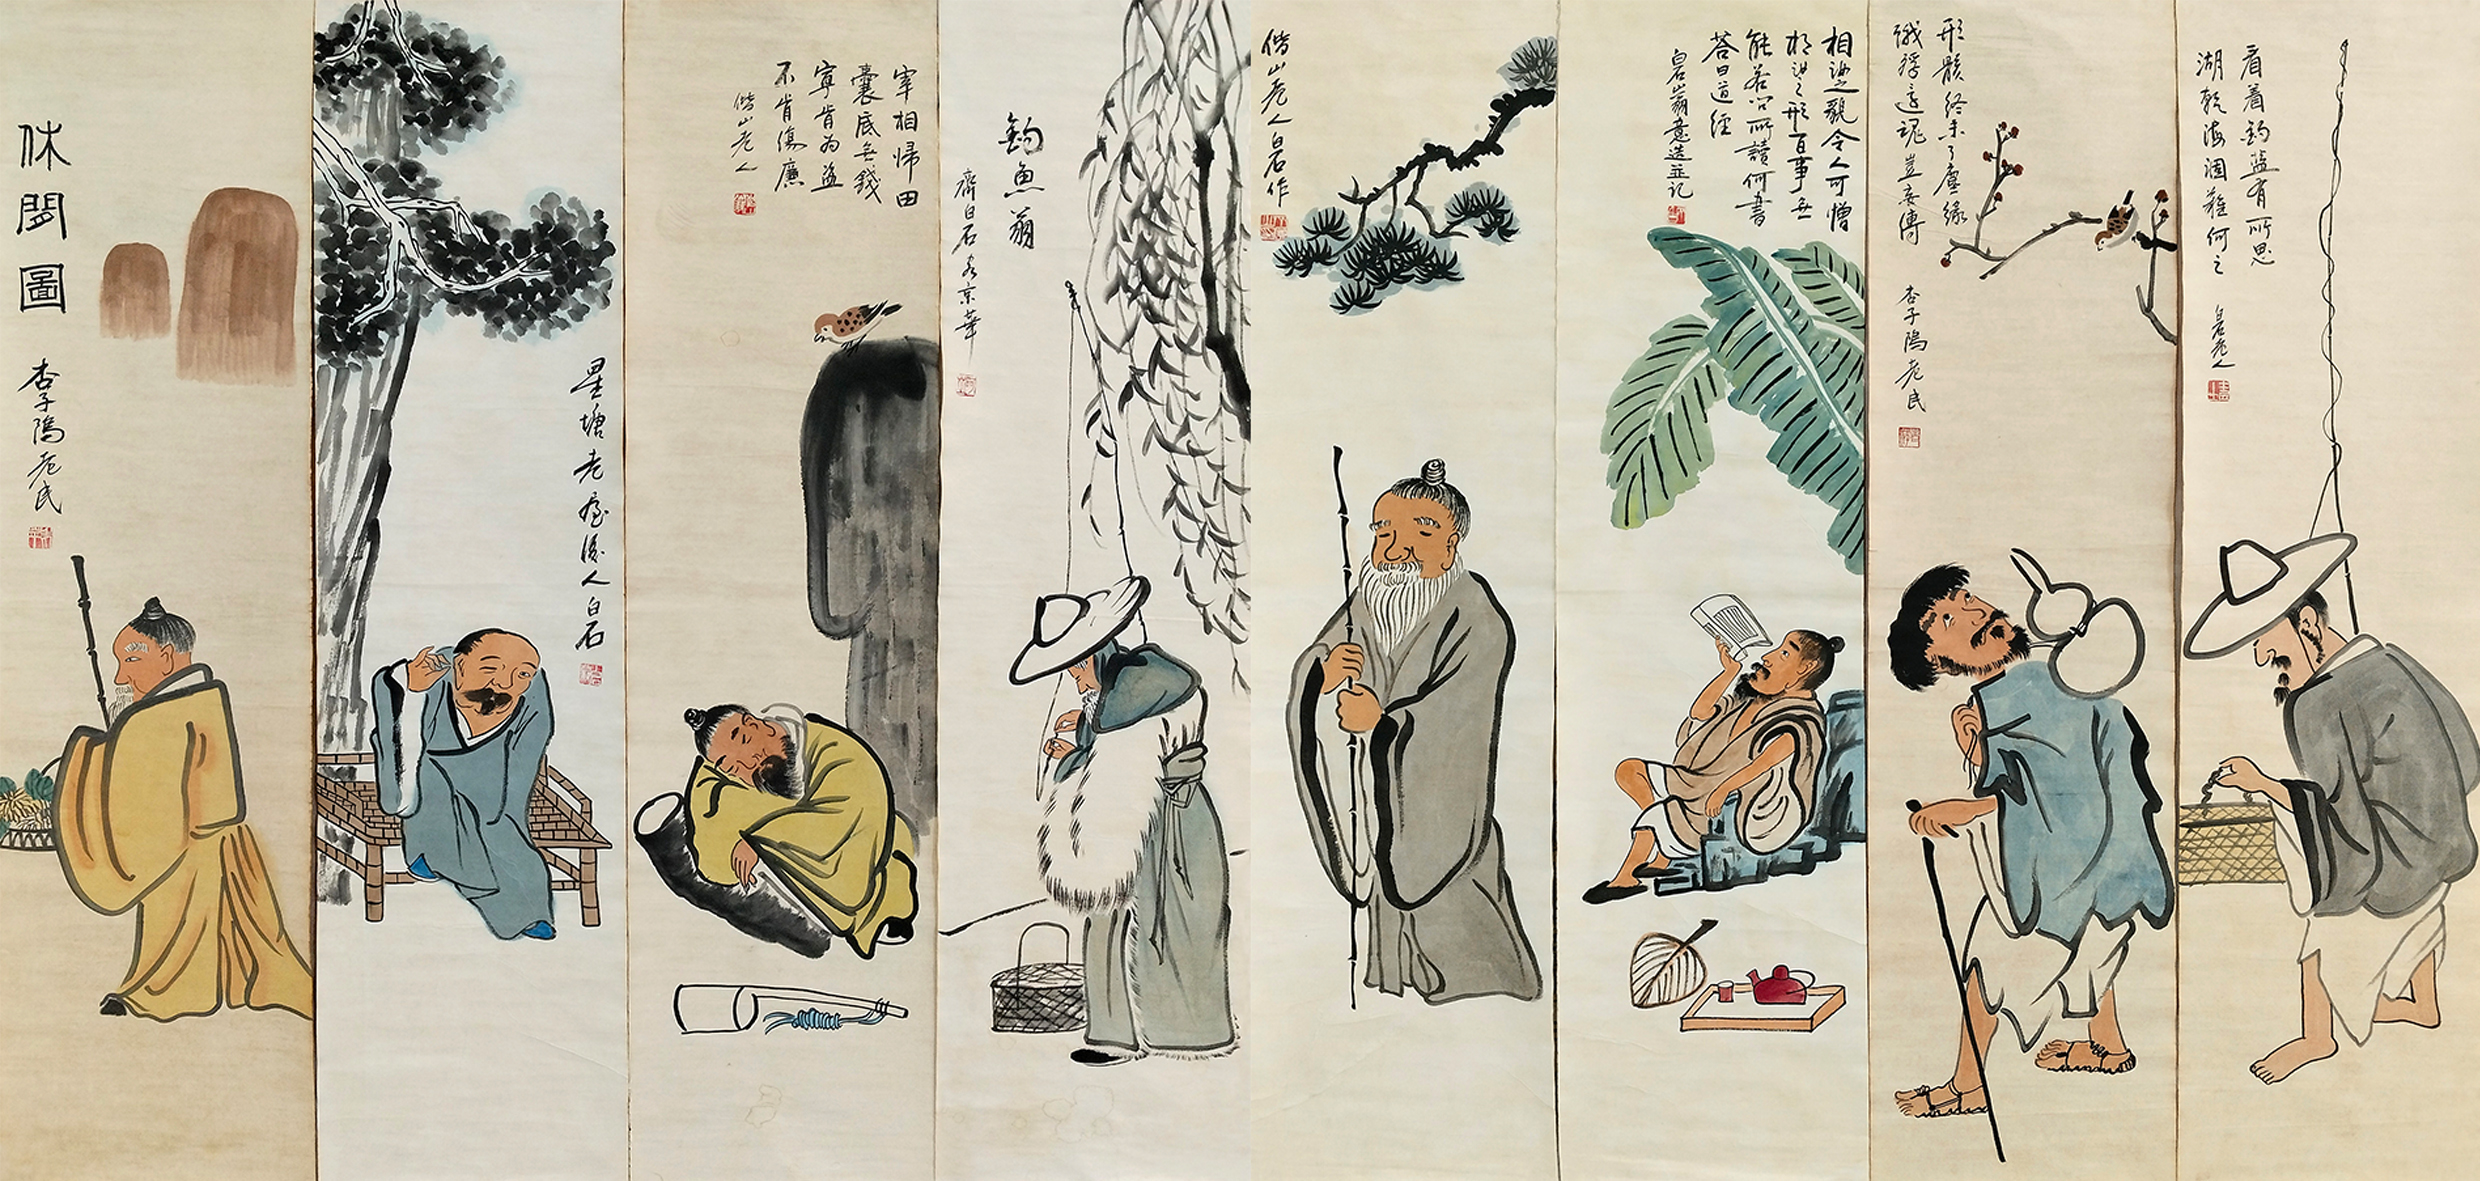 看着釣籃有所思
湖乾海涸難何之
白石老人
形骸終未了塵緣
餓殍還魂豈妄傳
杏子隝老民
相汝之貌令人可憎
相汝之形百事無
能若問所讀何書
答曰道經
白石山翁意造並記
借山老人白石作
釣魚翁
齊白石客京華
宰相歸田
囊底無錢
寧肯為盜
不肯傷廉
借山老人
星塘老屋後人白石
休閒圖
杏子隝老民